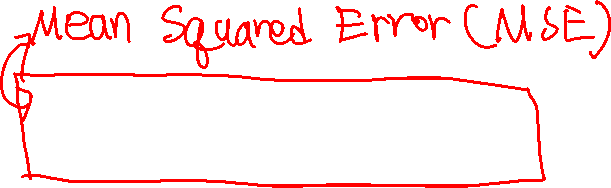 Mean Squared Error (MSE)